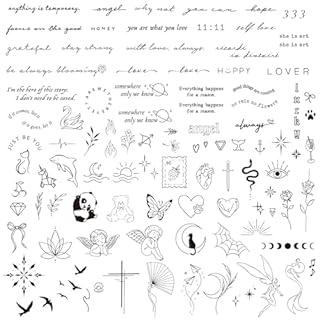 anything is temporary. angel why not you can hope 333
focus on the good HONEY you are what you love 11:11 self love she is art
grateful stay strong with love, always. she is art
be always blooming love love HAPPY LOVER
I'm the hero of this story.
I don't need to be saved.
somewhere
only we know
somewhere
only we know
Everything happens
for a reason.
Everything happens
for a reason.
good things are coming
no rain no flowers
always
angel
JUST BE YOU